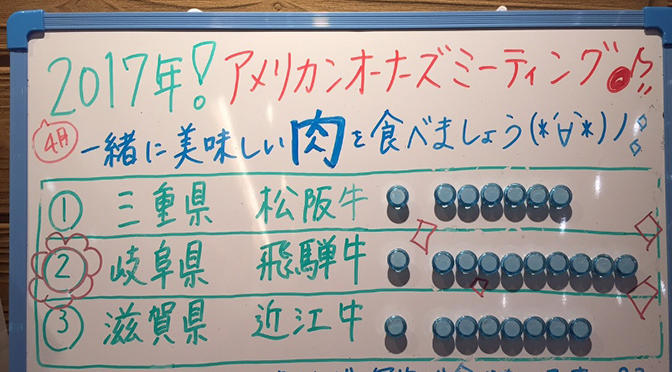 2017年! アメリカンオーナーズミーティング♪!!
4月
一緒に美味しい肉を食べましょう(*´∀`*)ノ
① 三重県 松阪牛
② 岐阜県 飛騨牛
③ 滋賀県 近江牛